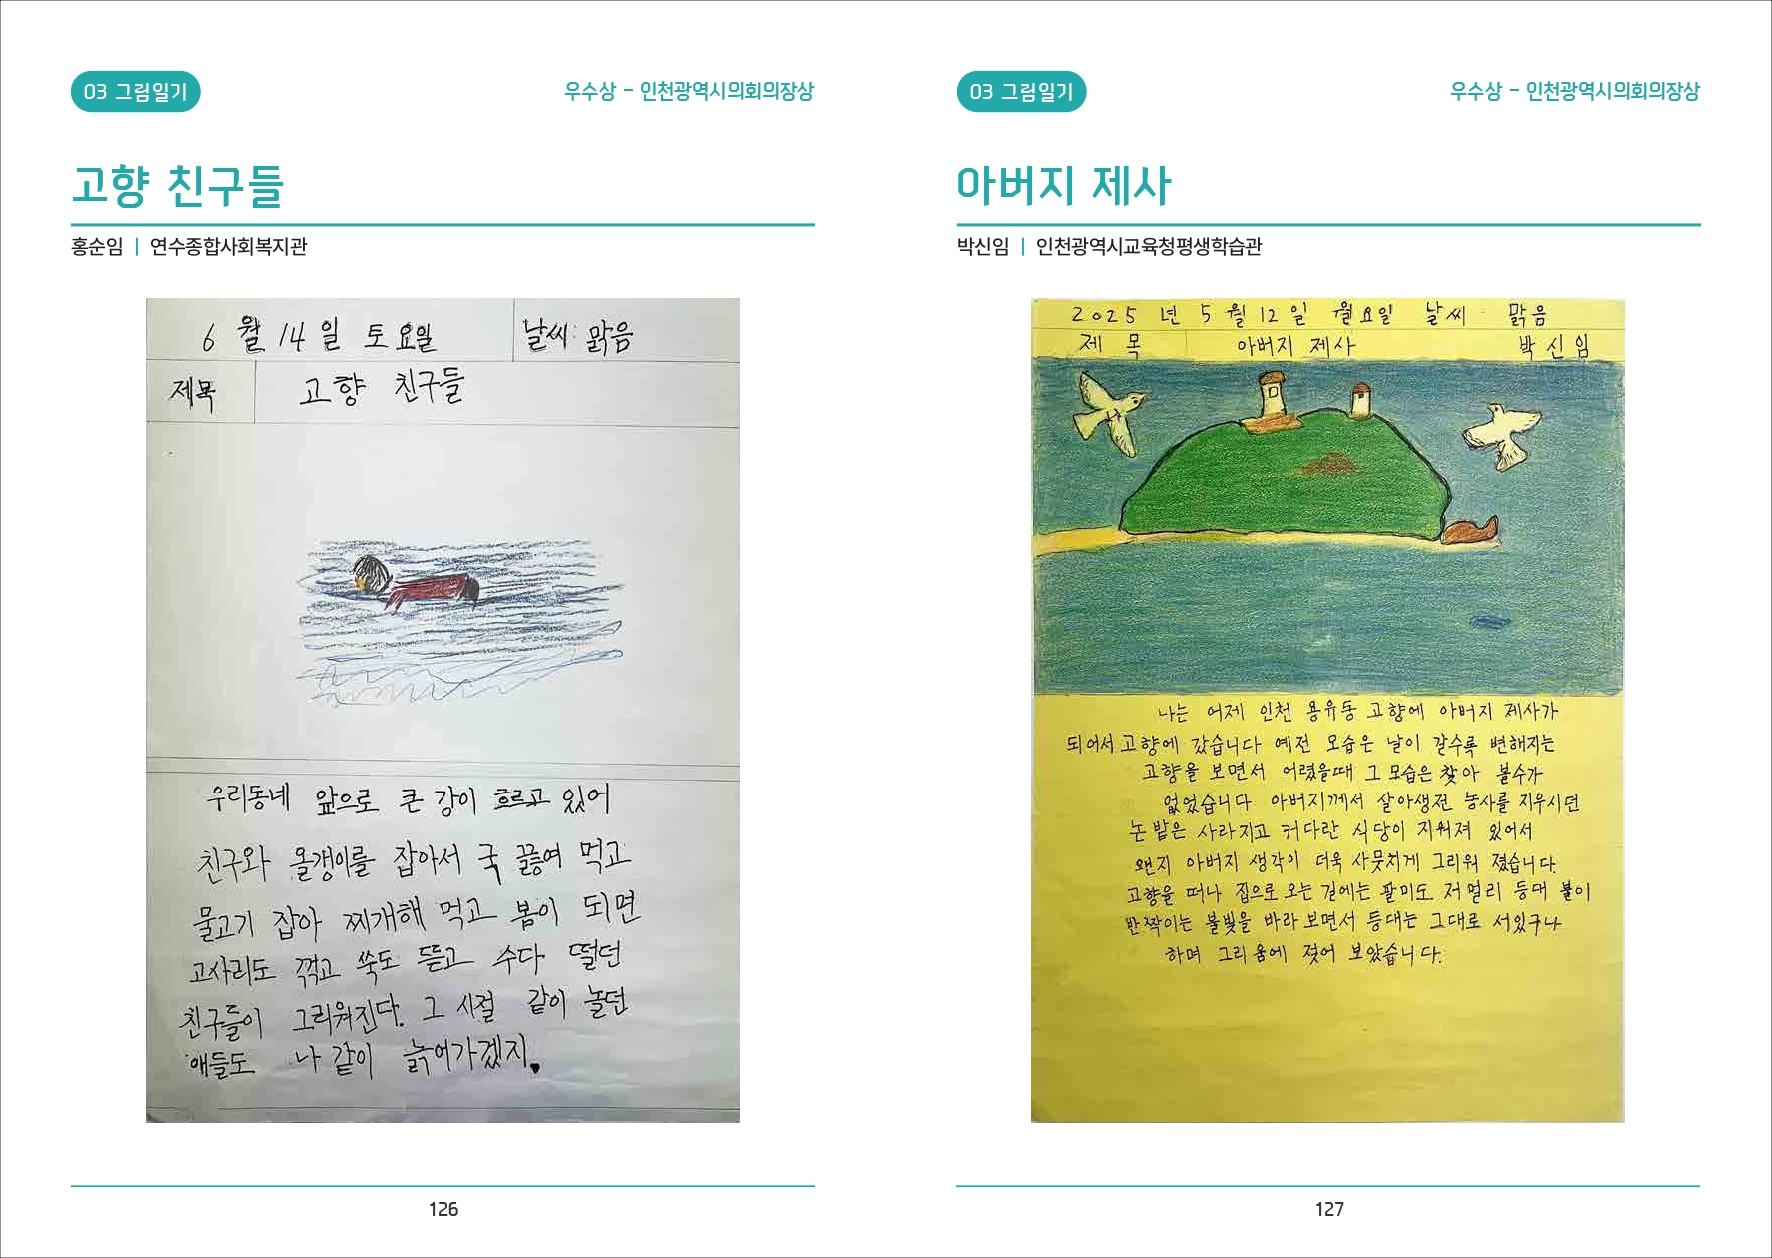 03 그림일기
우수상 - 인천광역시의회의장상
고향 친구들
홍순임 | 연수종합사회복지관
6 월 14 일 토요일
날씨: 맑음
제목
고향 친구들
우리동네 앞으로 큰 강이 흐르고 있어
친구와 올갱이를 잡아서 국 끓여 먹고
물고기 잡아 찌개해 먹고 봄이 되면
고사리도 꺾고 쑥도 뜯고 수다 떨던
친구들이 그리워진다. 그 시절 같이 놀던
애들도 나 같이 늙어가겠지.
126
03 그림일기
우수상 - 인천광역시의회의장상
아버지 제사
박신임 | 인천광역시교육청평생학습관
2025 년 5 월 12 일 월요일 날씨 : 맑음
제 목 아버지 제사 박 신 임
나는 어제 인천 용유동 고향에 아버지 제사가
되어서 고향에 갔습니다 예전 모습은 날이 갈수록 변해지는
고향을 보면서 어렸을때 그 모습은 찾아 볼수가
없었습니다 아버지께서 살아생전 농사를 지우시던
논 밭은 사라지고 커다란 식당이 지워져 있어서
왠지 아버지 생각이 더욱 사뭇치게 그리워 졌습니다.
고향을 떠나 집으로 오는 길에는 팔미도 저 멀리 등대 불이
반짝이는 불빛을 바라보면서 등대는 그대로 서있구나
하며 그리움에 젖어 보았습니다.
127